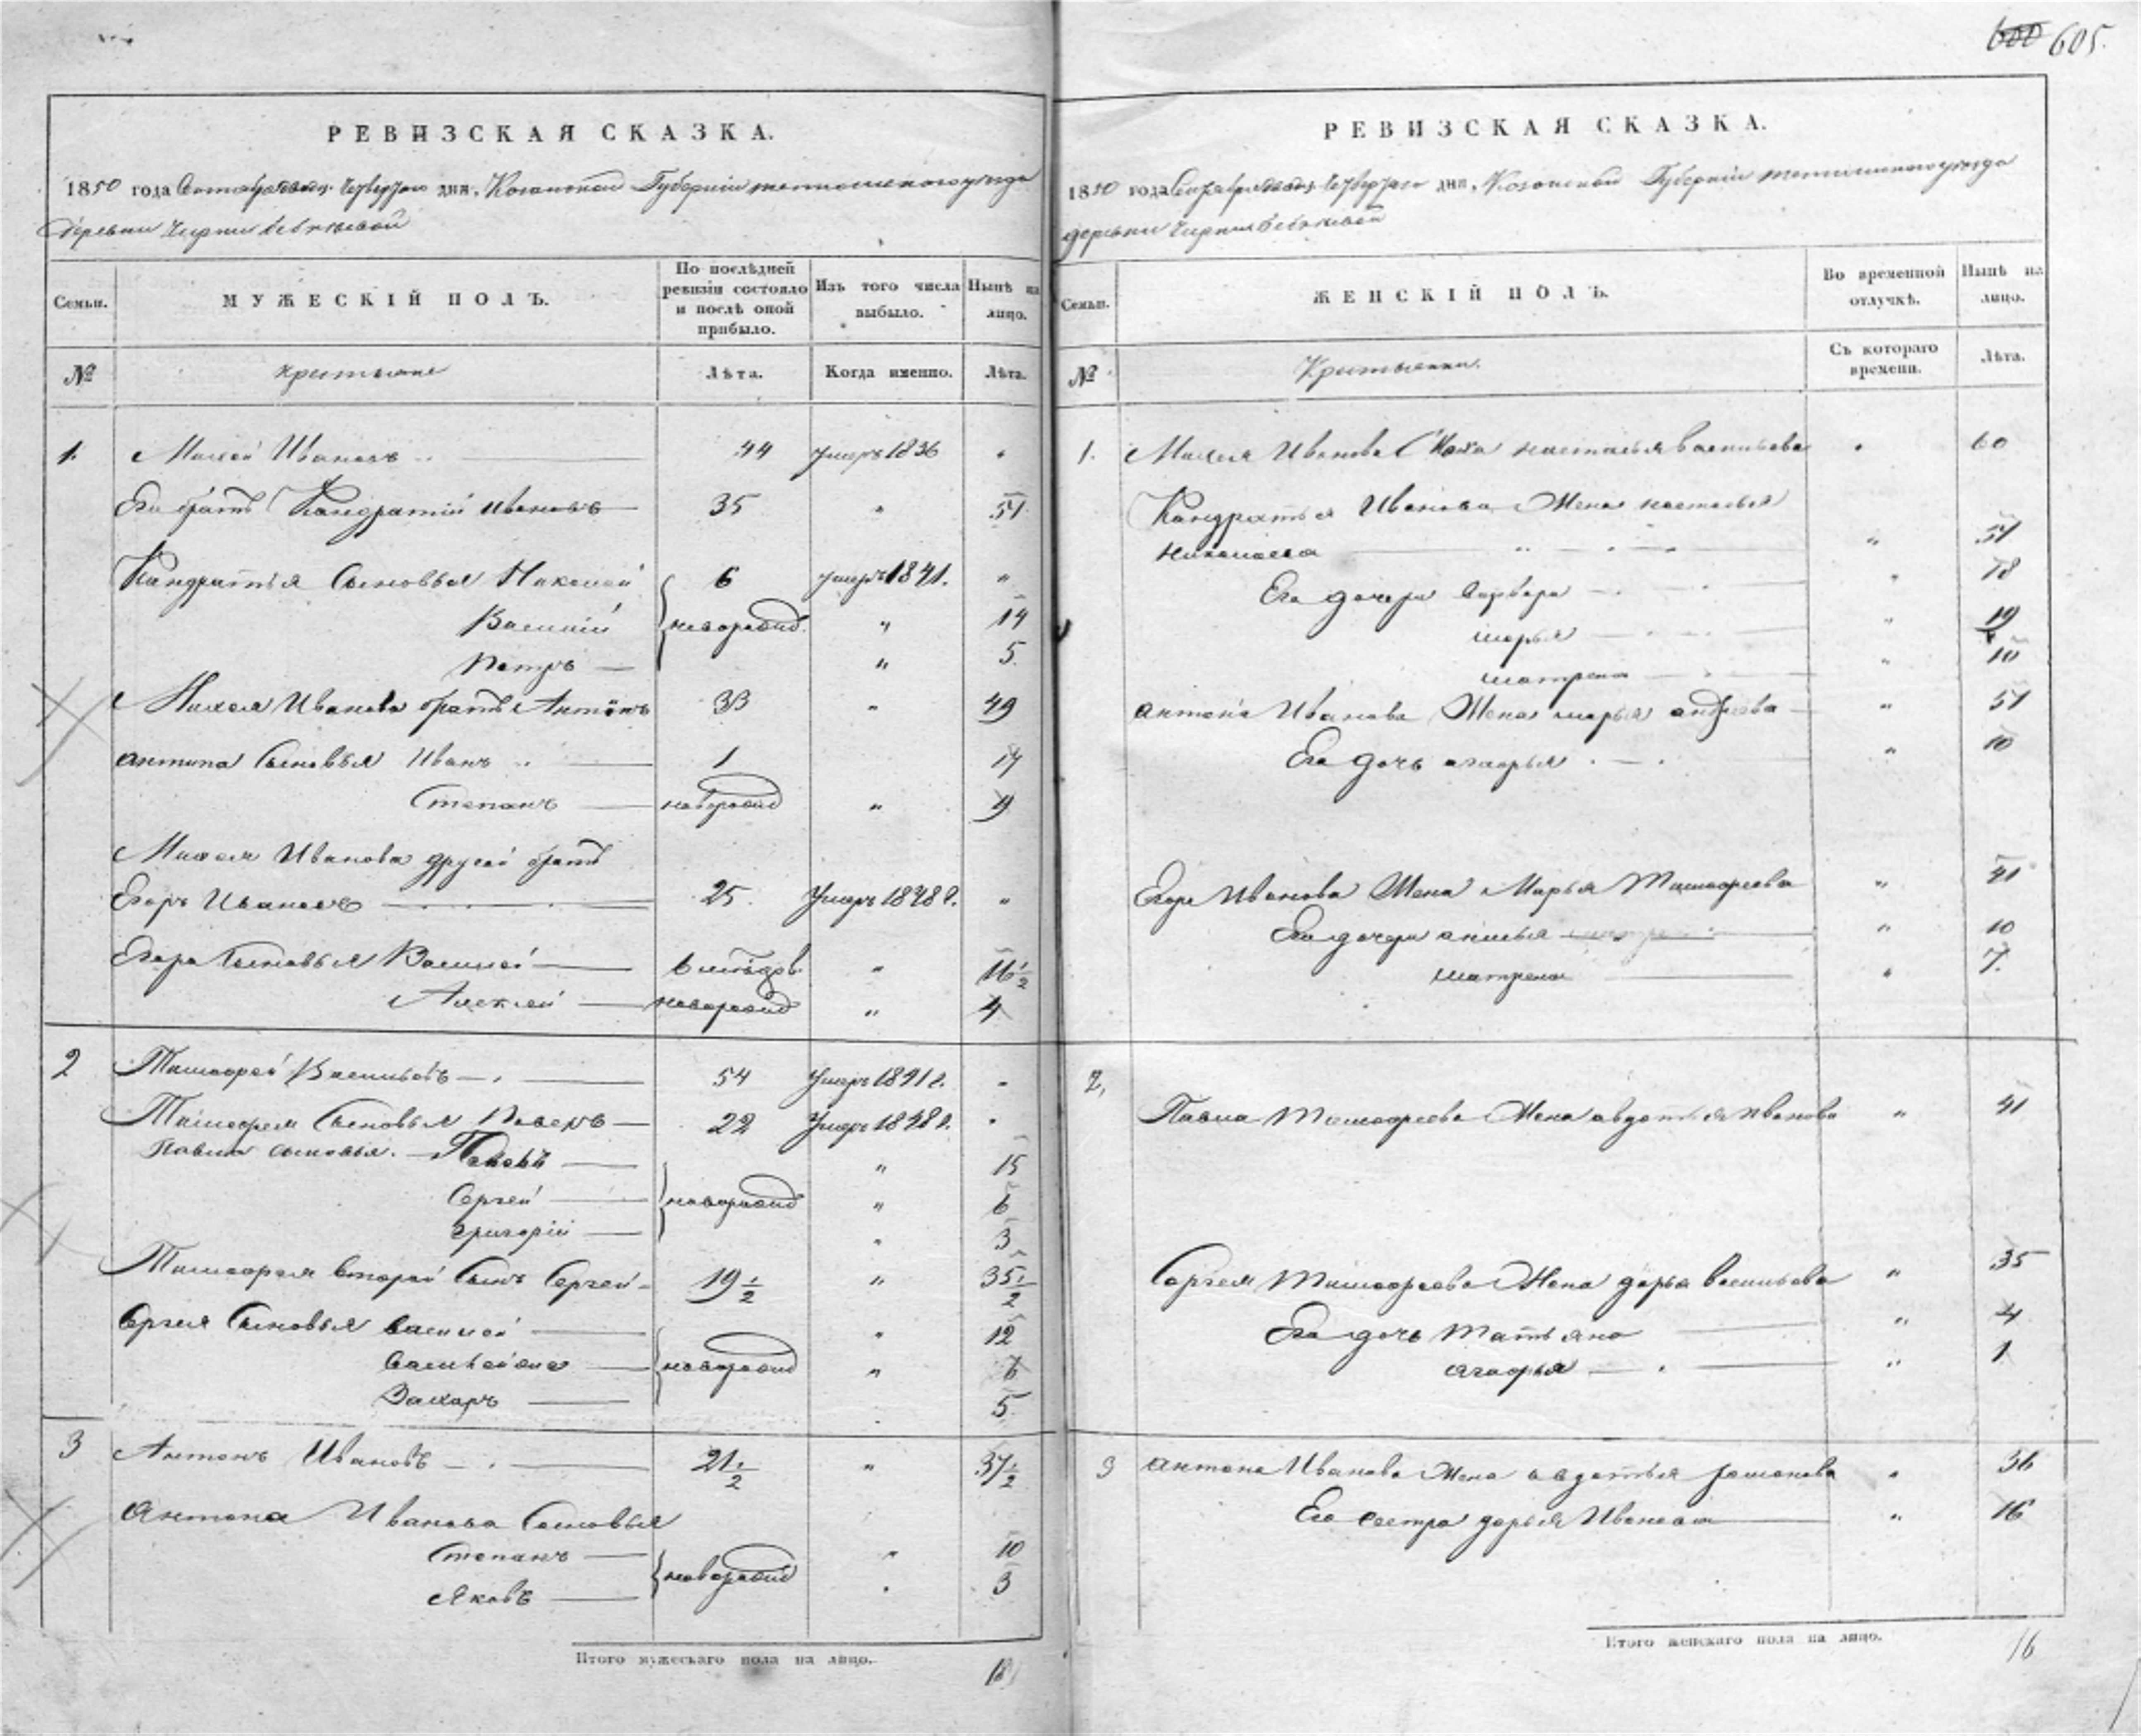 600 605.
РЕВИЗСКАЯ СКАЗКА.
1850 года Сентября четвертого дня, Козанской Губернии тетюшского уезда
Деревни
Семьи.
МУЖЕСКІЙ ПОЛЪ.
По послѣдней ревизіи состояло и послѣ оной прибыло.
Изъ того числа выбыло.
Нынѣ на лицо.
№
крестьяне
Лѣта.
Когда именно.
Лѣта.
1. Михей Ивановъ 44 умеръ 1836 "
Его братъ Кандратій Ивановъ 35 " 51
Кандратья Сыновья Николай 6 умеръ 1841. "
Василій новорожд. " 14
Петръ " 5
Михея Иванова братъ Антонъ 33 " 49
Сыновья Иванъ 1 17
Степанъ новорожд " 9
Михея Иванова другой братъ
Егоръ Ивановъ 25 Умеръ 1848 г. "
Егора Сыновья Василей " 16 1/2
Алексей новорожд " 4
2 Тимофей Васильевъ 54 Умеръ 1841 г. "
Тимофея Сыновья Павелъ 22 Умеръ 1848 г. "
Павла сыновья. " 15
Сергей новорожд " 6
Григорій " 3
Тимофея второй Сынъ Сергей 19 1/2 " 35 1/2
Сергея Сыновья Василей " 12
новорожд " 6
Захаръ 5
3 Антонъ Ивановъ 21 1/2 " 37 1/2
Антона Иванова Сыновья
Степанъ новорожд " 10
Яковъ " 3
Итого мужескаго пола на лицо. 18
РЕВИЗСКАЯ СКАЗКА.
1850 года Сентября четвертого дня, Козонской Губернии тетюшского уезда
деревни
Семьи.
ЖЕНСКІЙ ПОЛЪ.
Во временной отлучкѣ.
Нынѣ на лицо.
№
Крестьянки.
Съ котораго времени.
Лѣта.
1. Михея Иванова настасья васильева " 60
Кандратья Иванова Жена настасья
николаева " 51
Его дочери варвара " 18
марья "
матрена " 10
антона Иванова Жена марья андреева " 51
Его дочь агафья " 10
Егора Иванова Жена Марья Тимофеева " 41
Его дочери " 10
матрена " 7.
2, Павла Тимофеева Жена авдотья Иванова " 41
Сергея Тимофеева Жена дарья васильева " 35
Его дочь татьяна " 4
агафья " 1
3 антона Иванова Жена авдотья романова " 36
Его сестра дарья Иванова " 16
Итого женскаго пола на лицо. 16